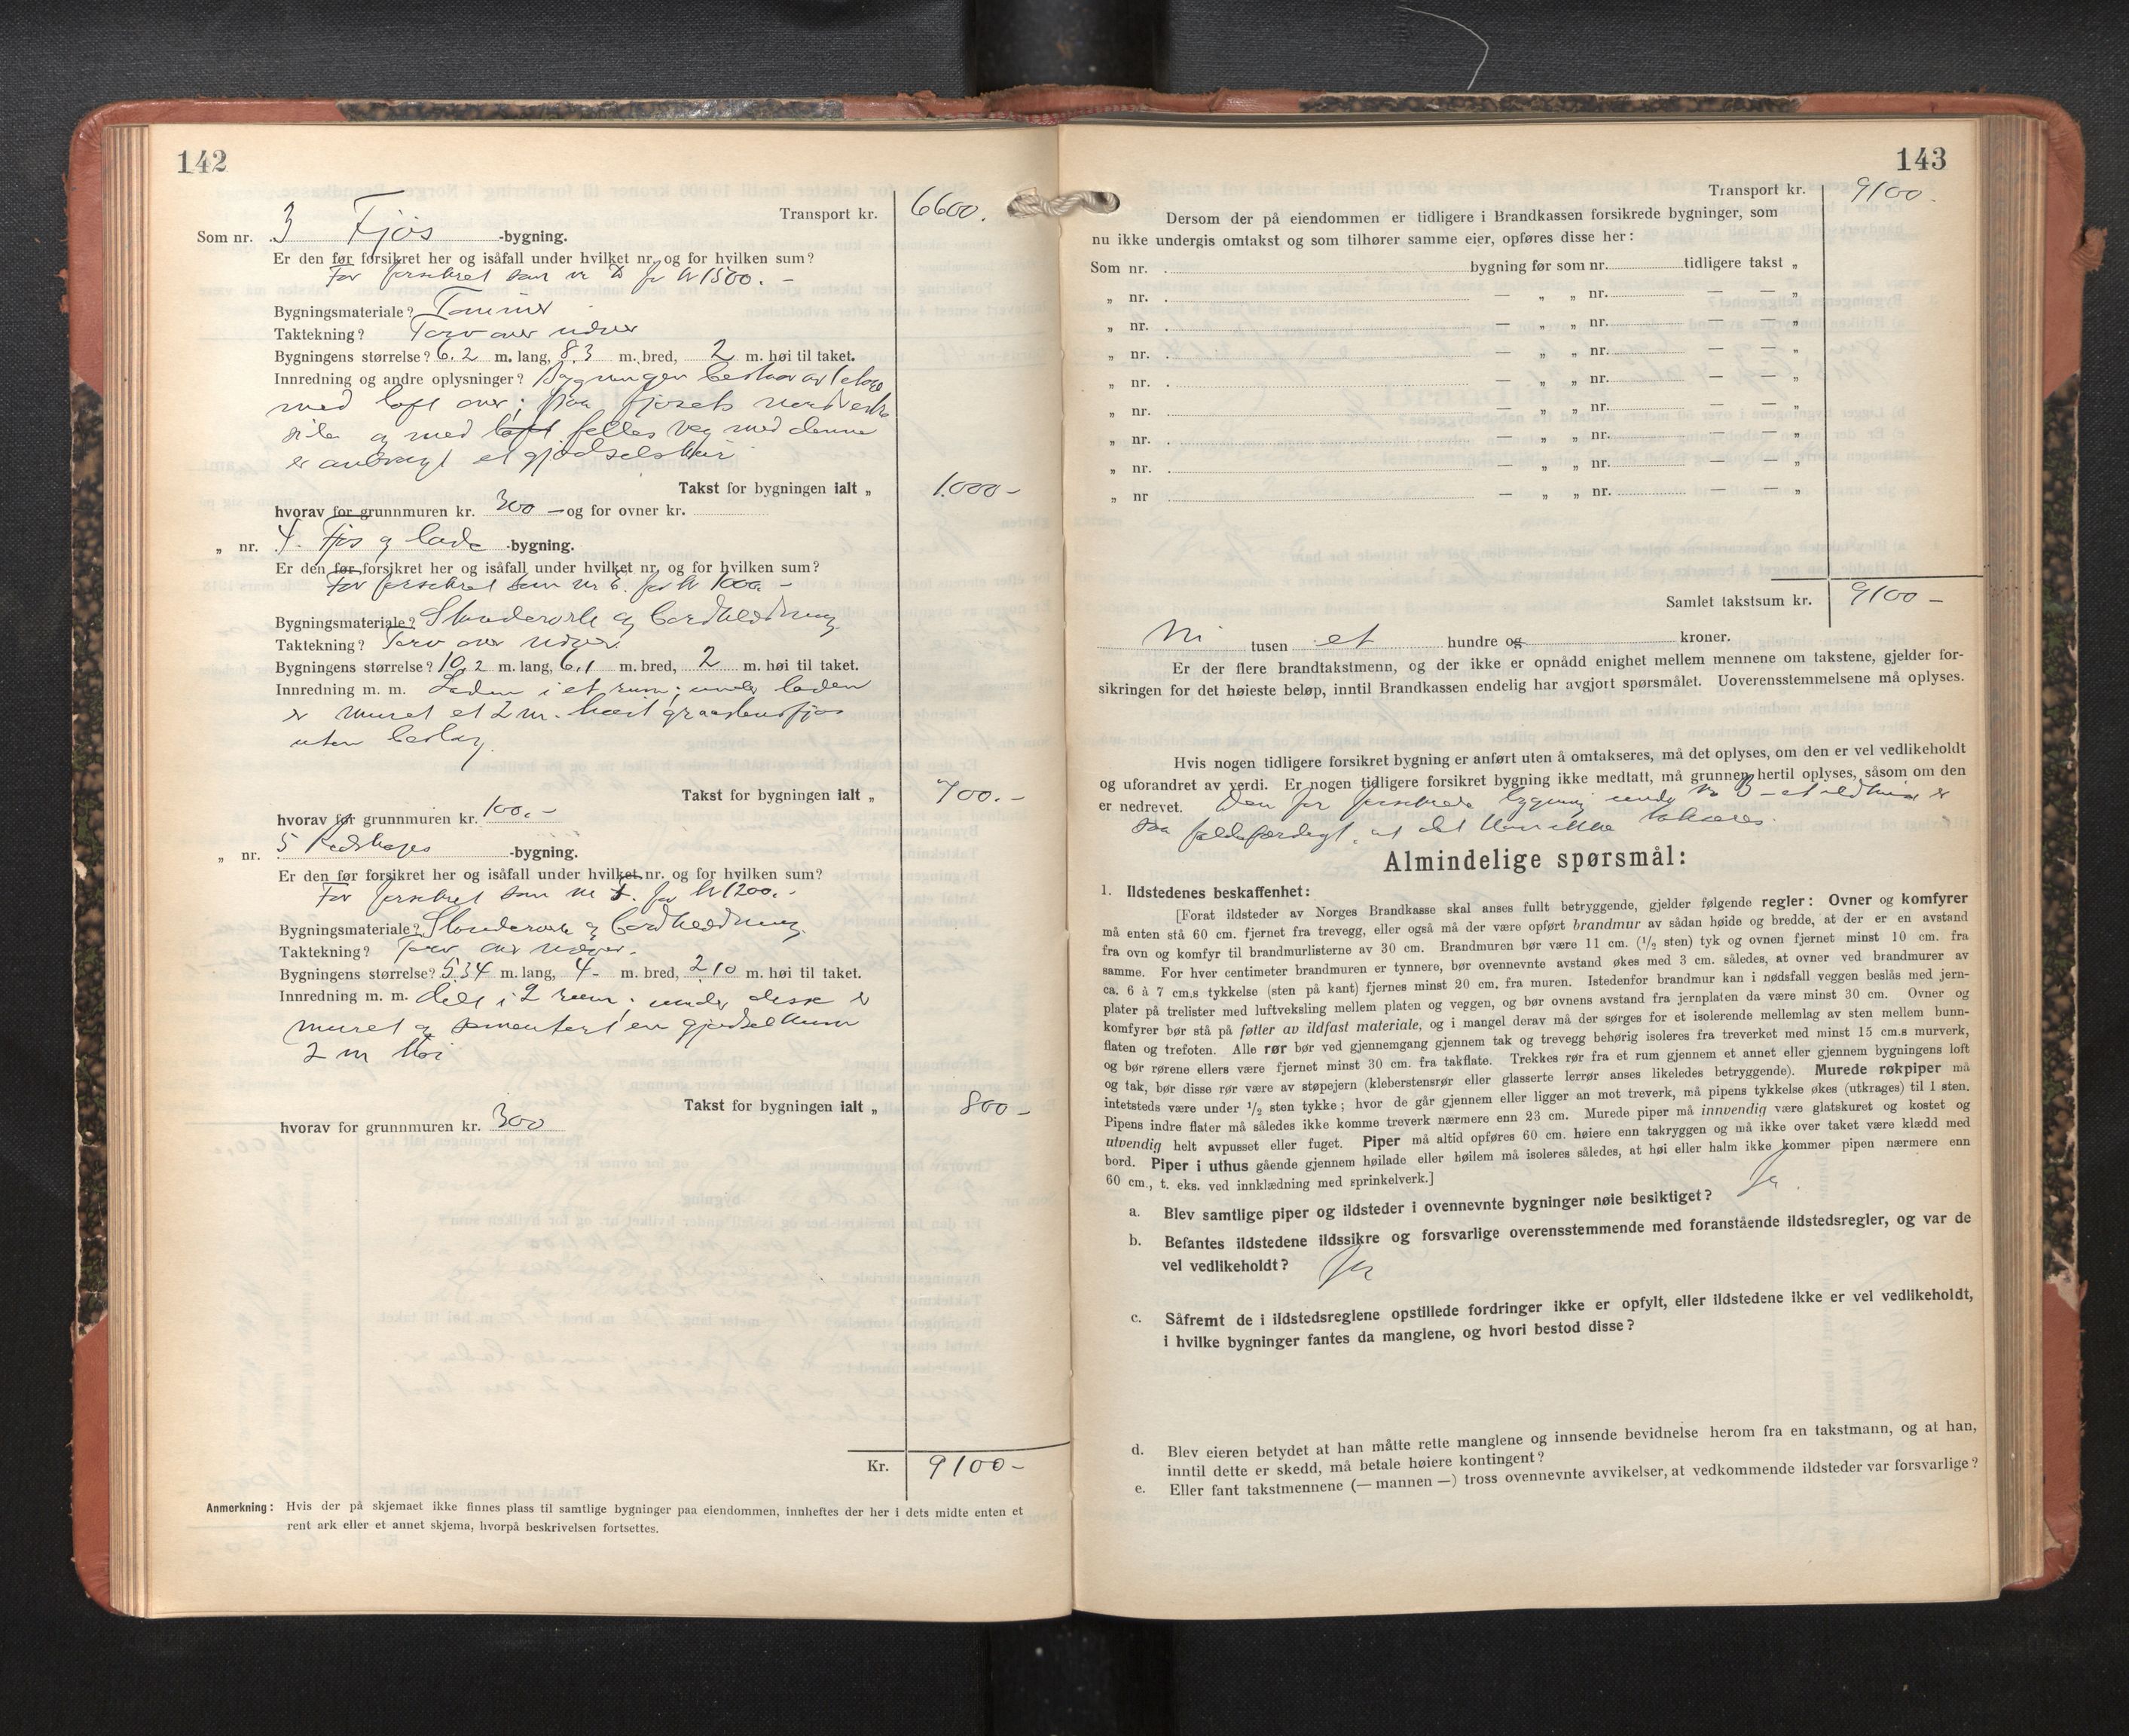 142
Transport kr. 6600.
Som nr. 3 Fjøs -bygning.
Er den før forsikret her og isåfall under hvilket nr. og for hvilken sum?
Før forsikret som nr D for kr 1500.-
Bygningsmateriale? Tømmer
Taktekning? Torv over næver
Bygningens størrelse? 6,2 m. lang, 8,3 m. bred, 2 m. høi til taket.
Innredning og andre oplysninger? Bygningen bestaar av 1 etage
med loft over; paa fjøsets nordvestre
side og med loft felles veg med denne
er anbragt et gjødselskur
Takst for bygningen ialt „ 1.000-
hvorav for grunnmuren kr. 300 - og for ovner kr.
„ nr. 4. Fjøs og lade -bygning.
Er den før forsikret her og isåfall under hvilket nr. og for hvilken sum?
Før forsikret som nr E. for kr 1000.-
Bygningsmateriale? Stenderverk og bordklædning
Taktekning? Torv over næver.
Bygningens størrelse? 10,2 m. lang, 6,1 m. bred, 2 m. høi til taket.
Innredning m. m. Laden i et rum; under laden
er muret et 2 m. høit graastensfjøs
uten beslag.
Takst for bygningen ialt „ 700.-
hvorav for grunnmuren kr. 100.-
„ nr. 5 Redskaps -bygning.
Er den før forsikret her og isåfall under hvilket nr. og for hvilken sum?
Før forsikret som nr F. for kr 1200.-
Bygningsmateriale? Stenderverk og bordklædning.
Taktekning? Torv over næver.
Bygningens størrelse? 5,34 m. lang, 4- m. bred, 2,10 m. høi til taket.
Innredning m. m. delt i 2 rum; under disse er
muret og sementert en gjødselkum
2 m høi
Takst for bygningen ialt „ 800-
hvorav for grunnmuren kr. 300
Kr. 9100-
Anmerkning: Hvis der på skjemaet ikke finnes plass til samtlige bygninger paa eiendommen, innheftes der her i dets midte enten et
rent ark eller et annet skjema, hvorpå beskrivelsen fortsettes.
143
Transport kr. 9100.
Dersom der på eiendommen er tidligere i Brandkassen forsikrede bygninger, som
nu ikke undergis omtakst og som tilhører samme eier, opføres disse her:
Som nr. bygning før som nr. tidligere takst „
„ nr. — „ „ nr. — — „
„ nr. — „ „ nr. — — „
„ nr. — „ „ nr. — — „
„ nr. — „ „ nr. — — „
„ nr. — „ „ nr. — — „
„ nr. — „ „ nr. — — „
„ nr. — „ „ nr. — — „
„ nr — „ „ nr. — — „
Samlet takstsum kr. 9100-
Ni tusen et hundre og kroner.
Er der flere brandtakstmenn, og der ikke er opnådd enighet mellem mennene om takstene, gjelder for-
sikringen for det høieste beløp, inntil Brandkassen endelig har avgjort spørsmålet. Uoverensstemmelsene må oplyses.
Hvis nogen tidligere forsikret bygning er anført uten å omtakseres, må det oplyses, om den er vel vedlikeholdt
og uforandret av verdi. Er nogen tidligere forsikret bygning ikke medtatt, må grunnen hertil oplyses, såsom om den
er nedrevet. Den før forsikrede bygning under nr B - et ildhus er
saa faldefærdigt, at det kan ikke takseres.
Almindelige spørsmål:
1. Ildstedenes beskaffenhet:
[Forat ildsteder av Norges Brandkasse skal anses fullt betryggende, gjelder følgende regler: Ovner og komfyrer
må enten stå 60 cm. fjernet fra trevegg, eller også må der være opført brandmur av sådan høide og bredde, at der er en avstand
fra ovn og komfyr til brandmurlisterne av 30 cm. Brandmuren bør være 11 cm. (1/2 sten) tyk og ovnen fjernet minst 10 cm. fra
samme. For hver centimeter brandmuren er tynnere, bør ovennevnte avstand økes med 3 cm. således, at ovner ved brandmurer av
ca. 6 à 7 cm.s tykkelse (sten på kant) fjernes minst 20 cm. fra muren. Istedenfor brandmur kan i nødsfall veggen beslås med jern-
plater på trelister med luftveksling mellem platen og veggen, og bør ovnens avstand fra jernplaten da være minst 30 cm. Ovner og
komfyrer bør stå på føtter av ildfast materiale, og i mangel derav må der sørges for et isolerende mellemlag av sten mellem bunn-
flaten og trefoten. Alle rør bør ved gjennemgang gjennem tak og trevegg behørig isoleres fra treverket med minst 15 cm.s murverk,
og bør rørene ellers være fjernet minst 30 cm. fra takflate. Trekkes rør fra et rum gjennem et annet eller gjennem bygningens loft
og tak, bør disse rør være av støpejern (kleberstensrør eller glasserte lerrør anses likeledes betryggende). Murede røkpiper må
intetsteds være under 1/2 sten tykke; hvor de går gjennem eller ligger an mot treverk, må pipens tykkelse økes (utkrages) til 1 sten.
Pipens indre flater må således ikke komme treverk nærmere enn 23 cm. Murede piper må innvendig være glatskuret og kostet og
utvendig helt avpusset eller fuget. Piper må altid opføres 60 cm. høiere enn takryggen og må ikke over taket være klædd med
bord. Piper i uthus gående gjennem høilade eller høilem må isoleres således, at høi eller halm ikke kommer pipen nærmere enn
60 cm., t. eks. ved innklædning med sprinkelverk.]
a. Blev samtlige piper og ildsteder i ovennevnte bygninger nøie besiktiget? Ja.
b. Befantes ildstedene ildssikre og forsvarlige overensstemmende med foranstående ildstedsregler, og var de
vel vedlikeholdt? Ja
c. Såfremt de i ildstedsreglene opstillede fordringer ikke er opfylt, eller ildstedene ikke er vel vedlikeholdt,
i hvilke bygninger fantes da manglene, og hvori bestod disse?
d. Blev eieren betydet at han måtte rette manglene og innsende bevidnelse herom fra en takstmann, og at han,
inntil dette er skedd, må betale høiere kontingent?
e. Eller fant takstmennene (— mannen —) tross ovennevnte avvikelser, at vedkommende ildsteder var forsvarlige?